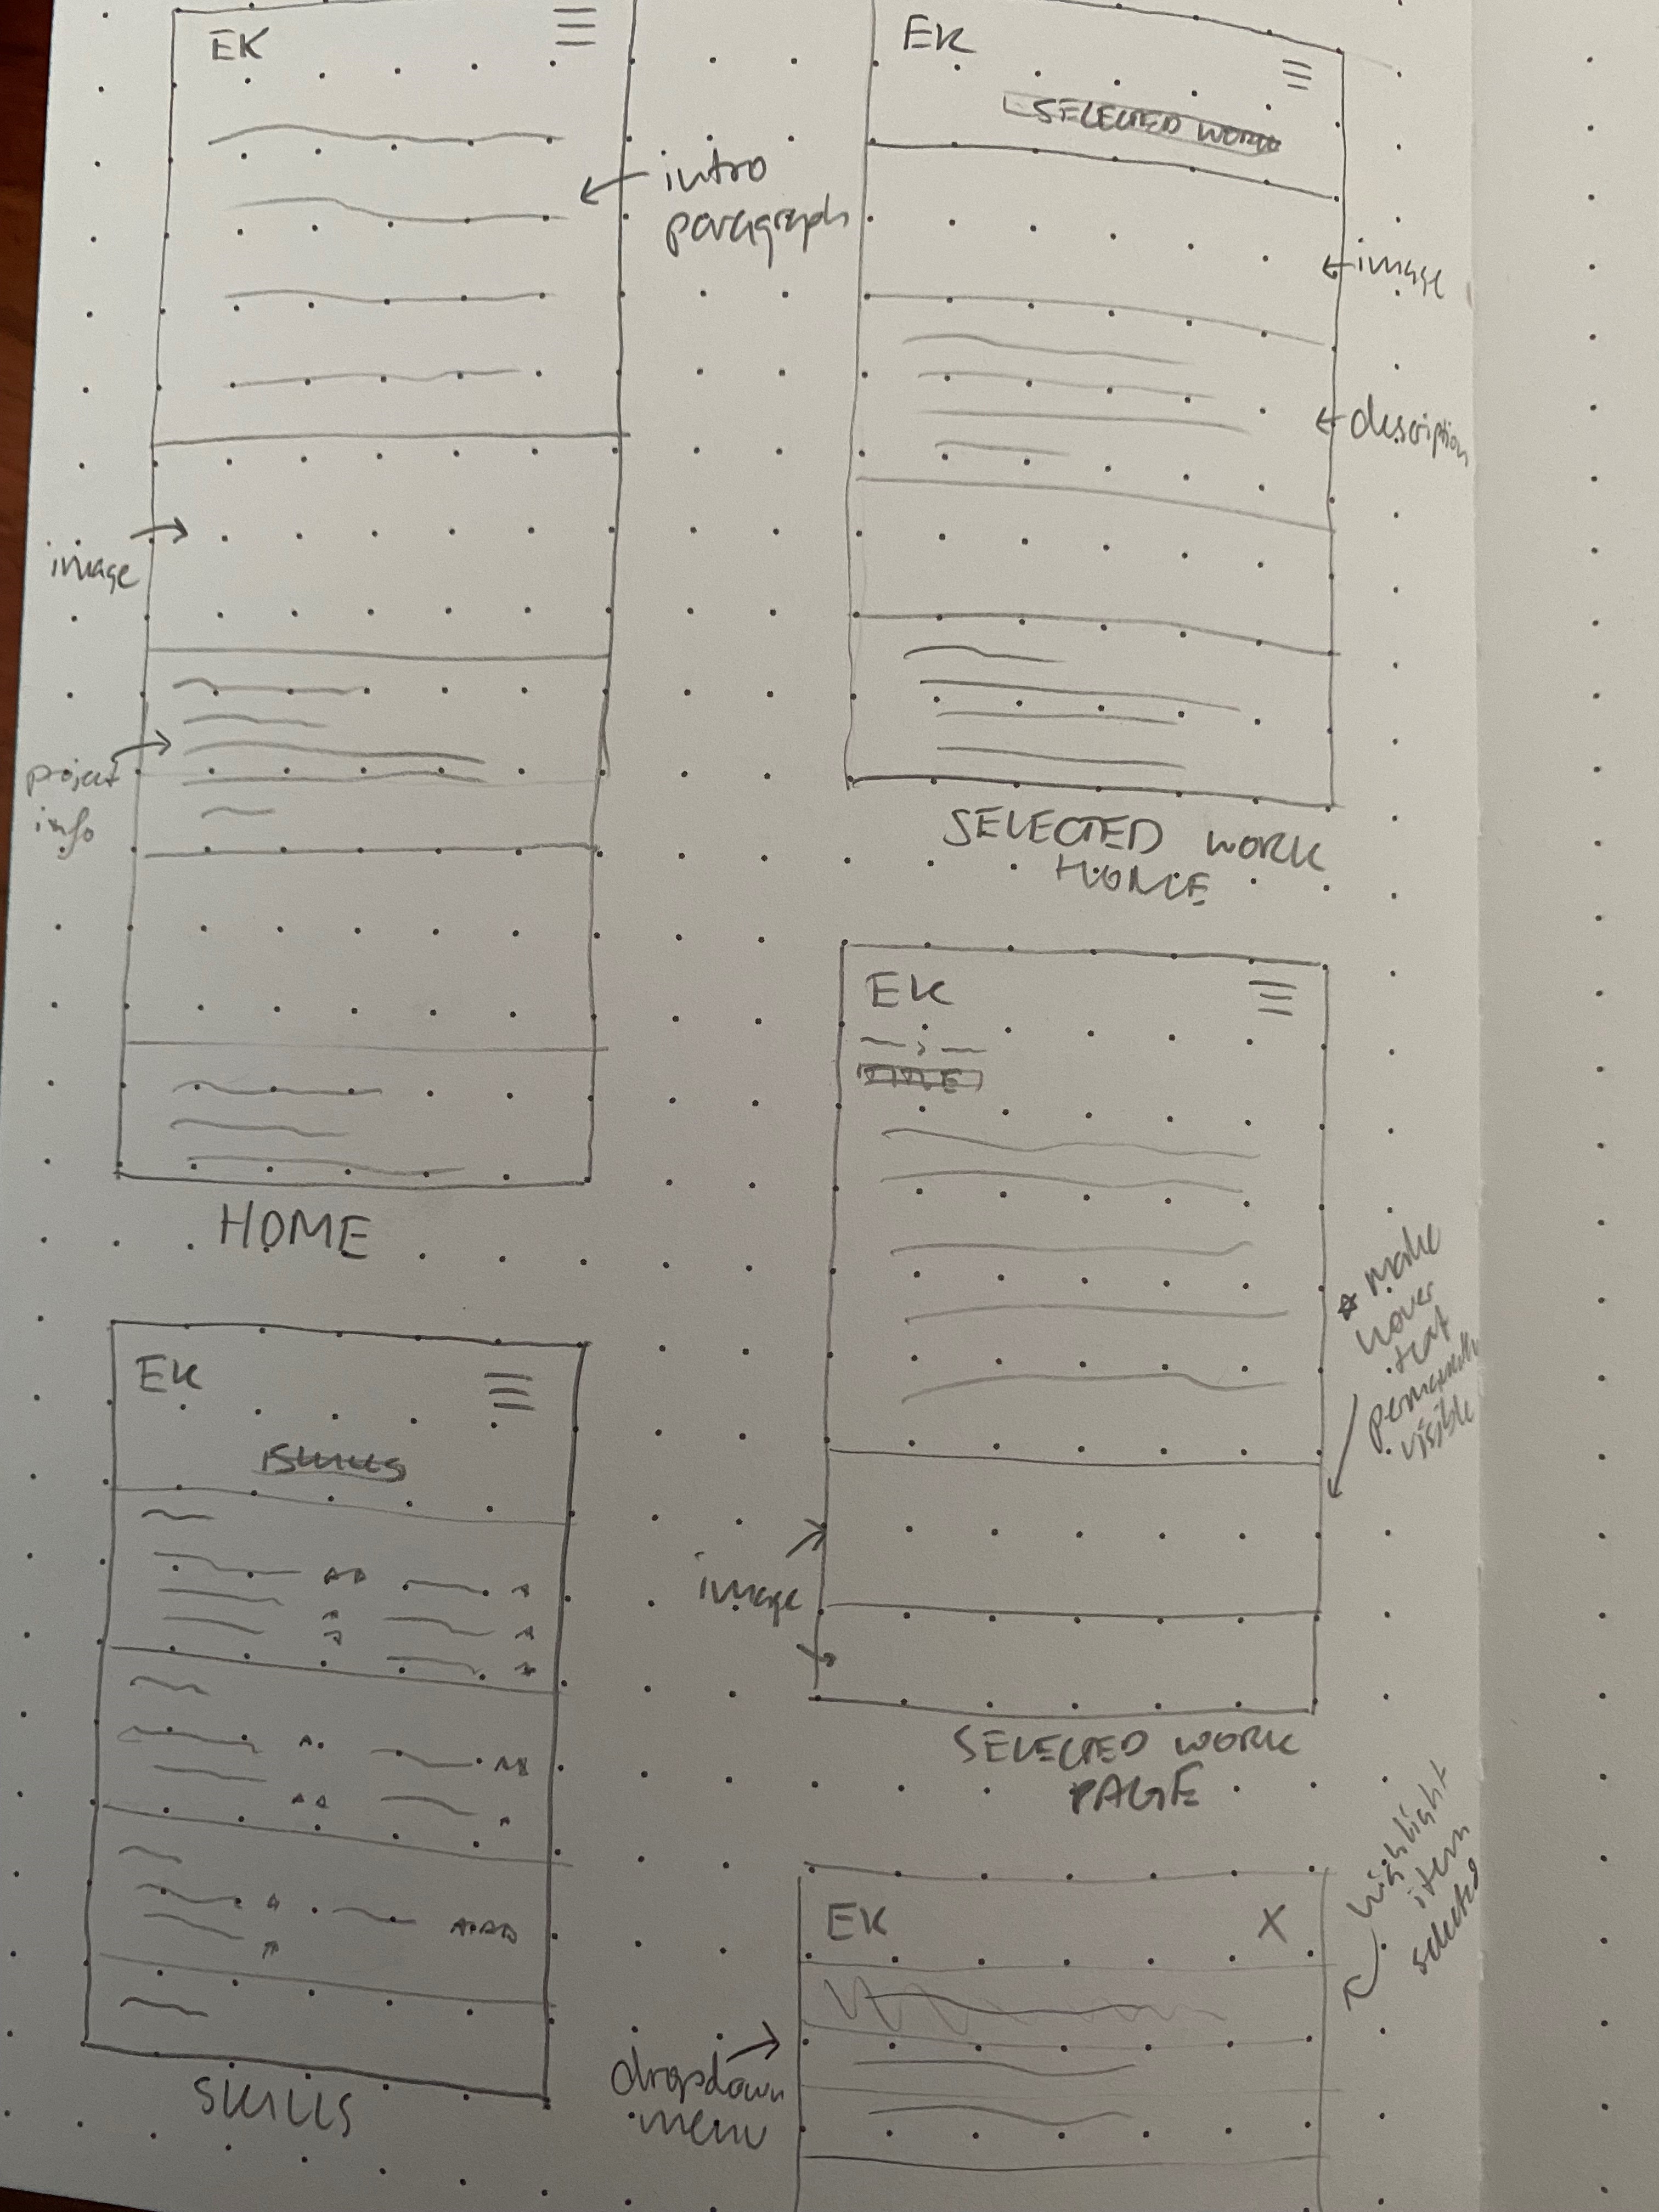 EK
intro
paragraph
image
project
info
HOME
EK
SELECTED WORK
image
description
SELECTED WORK
HOME
EK
TITLE
make
hover
text
permanently
visible
image
SELECTED WORK
PAGE
EK
SKILLS
SKILLS
EK X
highlight
item
selected
dropdown
menu